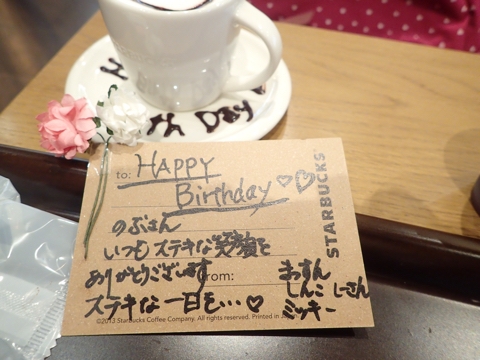 th Day
to: HAPPY
Birthday♡♡
STARBUCKS
のぶさん
いつもステキな笑顔を
ありがとうございます
ステキな一日を…♡
From:
まっすん
しんこ しーさん
ミッキー
©2013 Starbucks Coffee Company. All rights reserved. Printed in